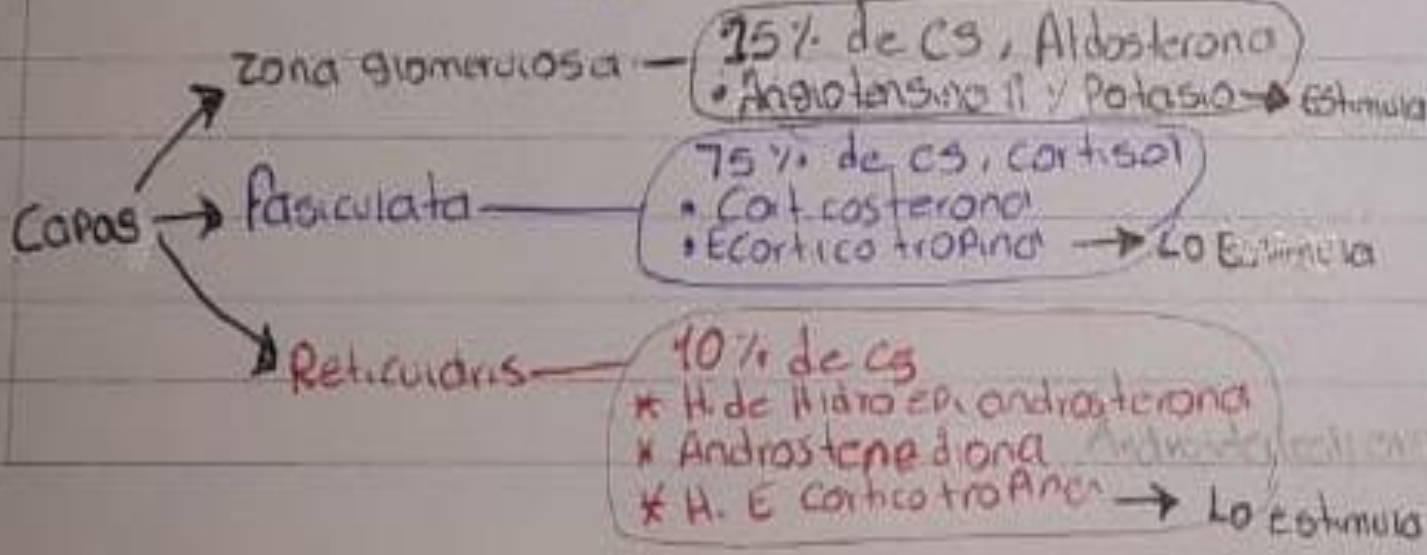 Zona glomerulosa — 15% de CS, Aldosterona
• Angiotensina II y Potasio → Estimula
Capas → Fasiculata — 75% de CS, Cortisol
• Corticosterona
• Ecorticotropina → Lo Estimula
Reticularis — 10% de CS
* H. de Hidroepiandrosterona
* Androstenediona
* H. E Corticotropina → Lo estimula